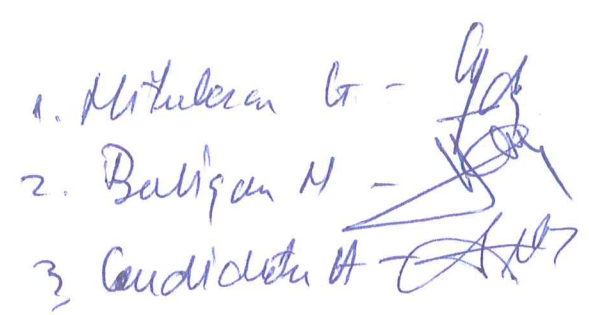 1. Mitulescu G -
2. Baligan M -
3. Candidatu A -